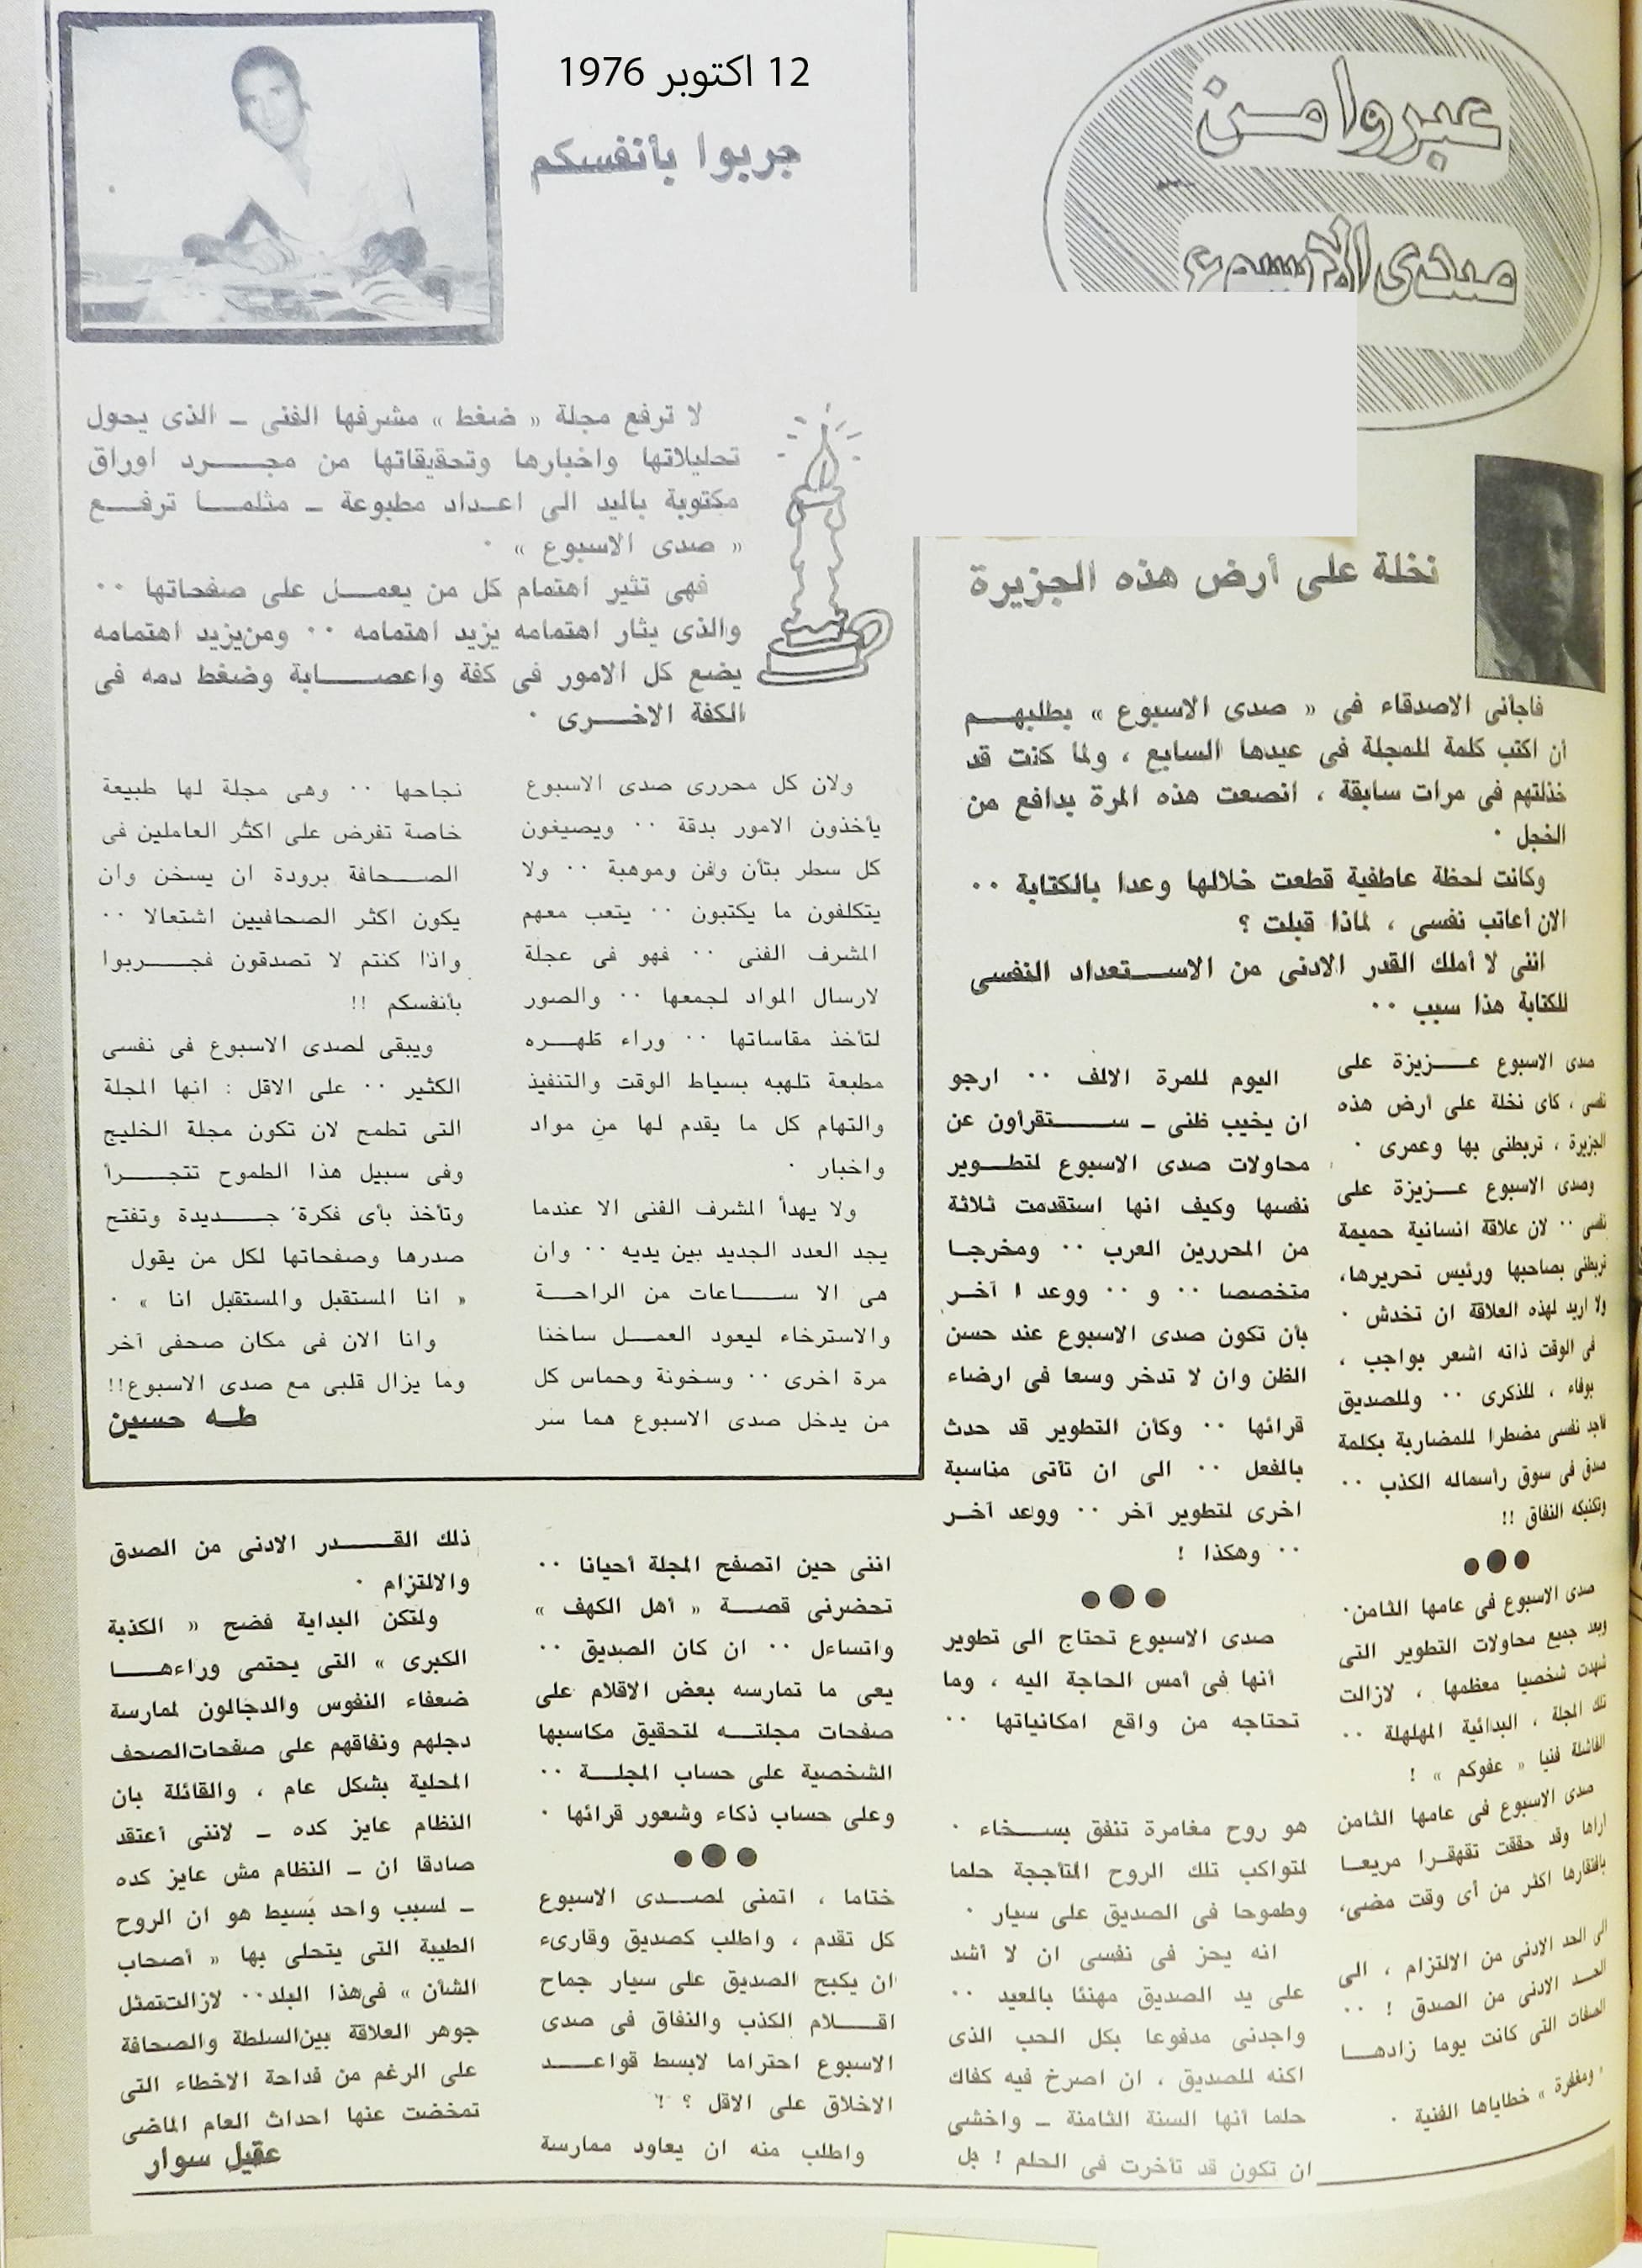 12 اكتوبر 1976
عبروا من
صدى الاسبوع
جربوا بأنفسكم
لا ترفع مجلة « ضغط » مشرفها الفنى ــ الذى يحول
تحليلاتها واخبارها وتحقيقاتها من مجرد اوراق
مكتوبة باليد الى اعداد مطبوعة ــ مثلما ترفع
« صدى الاسبوع » ٠
فهى تثير اهتمام كل من يعمل على صفحاتها ٠٠
والذى يثار اهتمامه يزيد اهتمامه ٠٠ ومن يزيد اهتمامه
يضع كل الامور فى كفة واعصابة وضغط دمه فى
الكفة الاخرى ٠
ولان كل محررى صدى الاسبوع
يأخذون الامور بدقة ٠٠ ويصيغون
كل سطر بتأن وفن وموهبة ٠٠ ولا
يتكلفون ما يكتبون ٠٠ يتعب معهم
المشرف الفنى ٠٠ فهو فى عجلة
لارسال المواد لجمعها ٠٠ والصور
لتأخذ مقاساتها ٠٠ وراء ظهره
مطبعة تلهبه بسياط الوقت والتنفيذ
والتهام كل ما يقدم لها من مواد
واخبار ٠
ولا يهدأ المشرف الفنى الا عندما
يجد العدد الجديد بين يديه ٠٠ وان
هى الا ساعات من الراحة
والاسترخاء ليعود العمل ساخنا
مرة اخرى ٠٠ وسخونة وحماس كل
من يدخل صدى الاسبوع هما سر
نجاحها ٠٠ وهى مجلة لها طبيعة
خاصة تفرض على اكثر العاملين فى
الصحافة برودة ان يسخن وان
يكون اكثر الصحافيين اشتعالا ٠٠
واذا كنتم لا تصدقون فجربوا
بأنفسكم !!
ويبقى لصدى الاسبوع فى نفسى
الكثير ٠٠ على الاقل : انها المجلة
التى تطمح لان تكون مجلة الخليج
وفى سبيل هذا الطموح تتجرأ
وتأخذ بأى فكرة جديدة وتفتح
صدرها وصفحاتها لكل من يقول
« انا المستقبل والمستقبل انا » ٠
وانا الان فى مكان صحفى آخر
وما يزال قلبى مع صدى الاسبوع!!
طه حسين
نخلة على أرض هذه الجزيرة
فاجأنى الاصدقاء فى « صدى الاسبوع » بطلبهم
أن اكتب كلمة للمجلة فى عيدها السابع ، ولما كنت قد
خذلتهم فى مرات سابقة ، انصعت هذه المرة بدافع من
الخجل ٠
وكانت لحظة عاطفية قطعت خلالها وعدا بالكتابة ٠٠
الان أعاتب نفسى ، لماذا قبلت ؟
اننى لا أملك القدر الادنى من الاستعداد النفسى
للكتابة هذا سبب ٠٠
صدى الاسبوع عزيزة على
نفسى ، كأى نخلة على أرض هذه
الجزيرة ، تربطنى بها وعمرى ٠
وصدى الاسبوع عزيزة على
نفسى ٠٠ لان علاقة انسانية حميمة
تربطنى بصاحبها ورئيس تحريرها،
ولا اريد لهذه العلاقة ان تخدش ٠
فى الوقت ذاته اشعر بواجب ،
بوفاء ، للذكرى ٠٠ وللصديق
فأجد نفسى مضطرا للمضاربة بكلمة
صدق فى سوق رأسماله الكذب ٠٠
وتكنيكه النفاق !!
●●●
صدى الاسبوع فى عامها الثامن٠
وبعد جميع محاولات التطوير التى
شهدت شخصيا معظمها ، لازالت
تلك المجلة ، البدائية المهلهلة ٠٠
الفاشلة فنيا « عفوكم » !
صدى الاسبوع فى عامها الثامن
اراها وقد حققت تقهقرا مريعا
بافتقارها اكثر من أى وقت مضى،
الى الحد الادنى من الالتزام ، الى
الحد الادنى من الصدق ! ٠٠
الصفات التى كانت يوما زادها
« ومغفرة » خطاياها الفنية ٠
اليوم للمرة الالف ٠٠ ارجو
ان يخيب ظنى ــ ستقرأون عن
محاولات صدى الاسبوع لتطوير
نفسها وكيف انها استقدمت ثلاثة
من المحررين العرب ٠٠ ومخرجا
متخصصا ٠٠ و ٠٠ ووعد ا آخر
بأن تكون صدى الاسبوع عند حسن
الظن وان لا تدخر وسعا فى ارضاء
قرائها ٠٠ وكأن التطوير قد حدث
بالفعل ٠٠ الى ان تأتى مناسبة
اخرى لتطوير آخر ٠٠ ووعد آخر
٠٠ وهكذا !
●●●
صدى الاسبوع تحتاج الى تطوير
أنها فى أمس الحاجة اليه ، وما
تحتاجه من واقع امكانياتها ٠٠
هو روح مغامرة تنفق بسخاء ٠
لتواكب تلك الروح المتأججة حلما
وطموحا فى الصديق على سيار ٠
انه يحز فى نفسى ان لا أشد
على يد الصديق مهنئا بالعيد ٠٠
واجدنى مدفوعا بكل الحب الذى
اكنه للصديق ، ان اصرخ فيه كفاك
حلما أنها السنة الثامنة ــ واخشى
ان تكون قد تأخرت فى الحلم ! بل
اننى حين اتصفح المجلة أحيانا ٠٠
تحضرنى قصة « أهل الكهف »
واتساءل ٠٠ ان كان الصديق ٠٠
يعى ما تمارسه بعض الاقلام على
صفحات مجلته لتحقيق مكاسبها
الشخصية على حساب المجلة ٠٠
وعلى حساب ذكاء وشعور قرائها ٠
●●●
ختاما ، اتمنى لصدى الاسبوع
كل تقدم ، واطلب كصديق وقارىء
ان يكبح الصديق على سيار جماح
اقلام الكذب والنفاق فى صدى
الاسبوع احتراما لابسط قواعد
الاخلاق على الاقل ؟ !
واطلب منه ان يعاود ممارسة
ذلك القدر الادنى من الصدق
والالتزام ٠
ولتكن البداية فضح « الكذبة
الكبرى » التى يحتمى وراءها
ضعفاء النفوس والدجالون لممارسة
دجلهم ونفاقهم على صفحات الصحف
المحلية بشكل عام ، والقائلة بان
النظام عايز كده ــ لاننى أعتقد
صادقا ان ــ النظام مش عايز كده
ــ لسبب واحد بسيط هو ان الروح
الطيبة التى يتحلى بها « أصحاب
الشأن » فى هذا البلد٠٠ لازالت تمثل
جوهر العلاقة بين السلطة والصحافة
على الرغم من فداحة الاخطاء التى
تمخضت عنها احداث العام الماضى
عقيل سوار